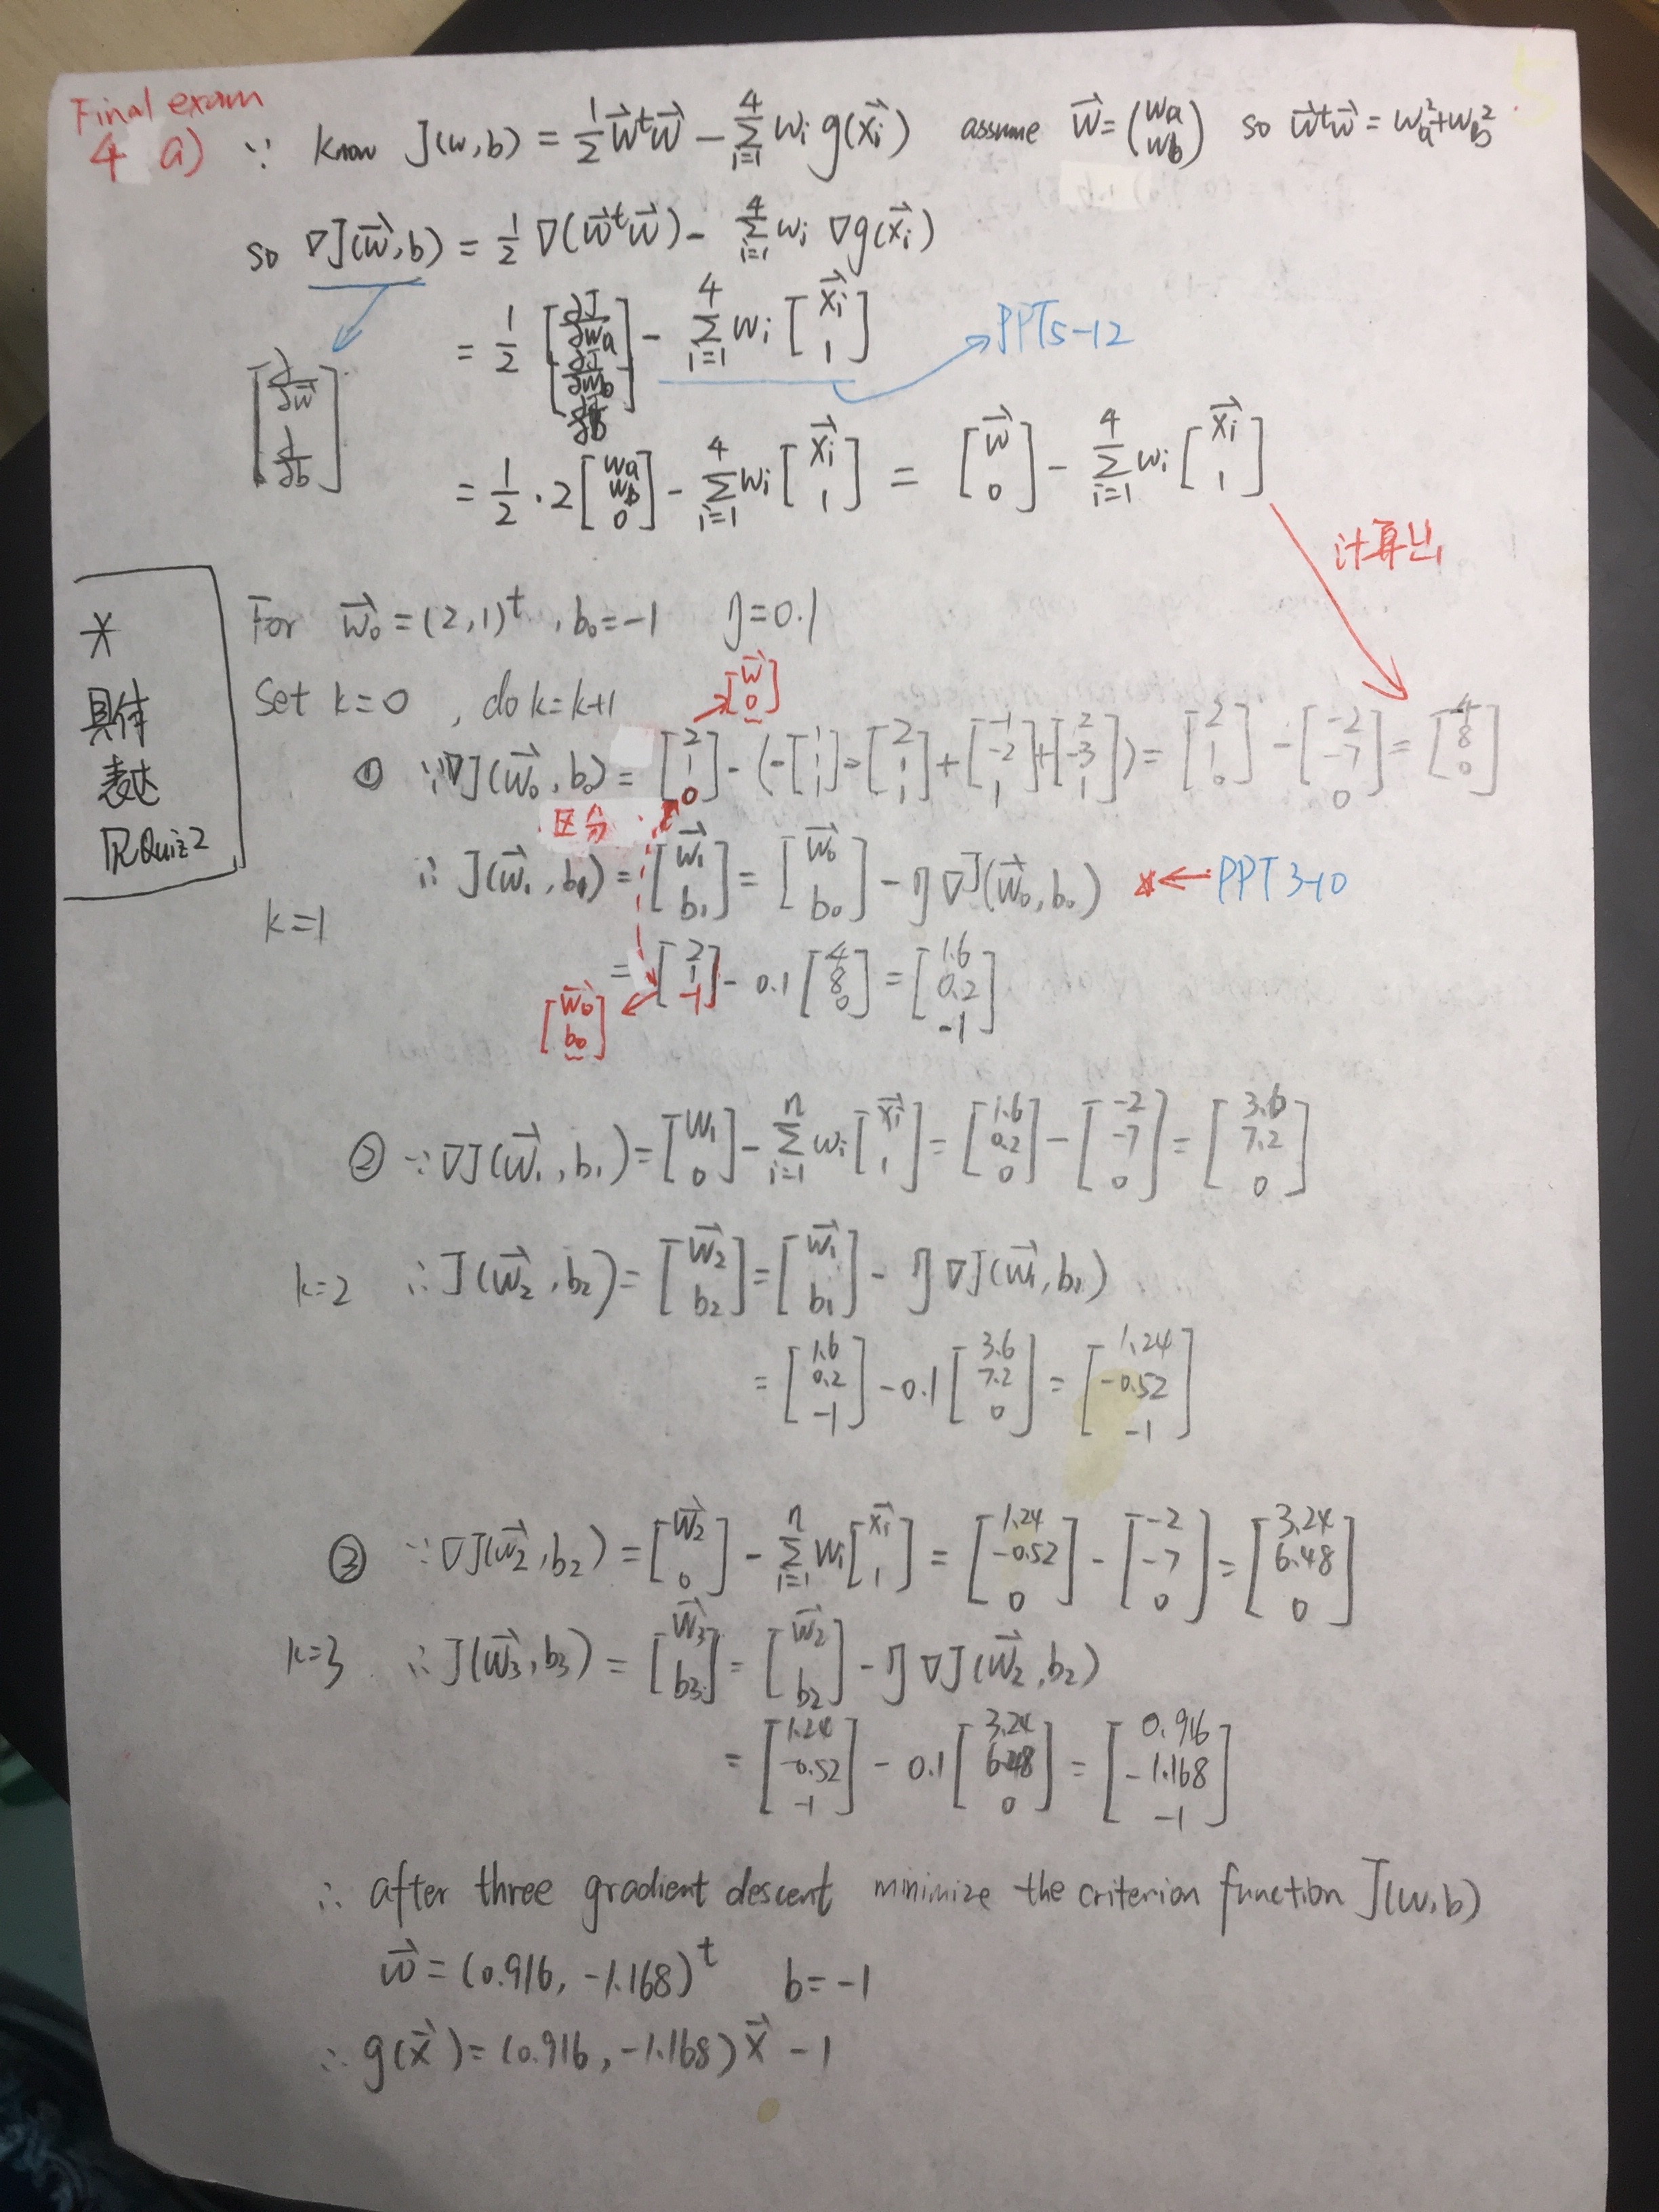 Final exam
4 a) ∵ know J(w,b) = 1/2 w⃗ᵗw⃗ − Σ_{i=1}^{4} wᵢ g(x⃗ᵢ) assume w⃗ = (wa wb) so w⃗ᵗw⃗ = wa²+wb²
so ∇J(w⃗,b) = 1/2 ∇(w⃗ᵗw⃗) − Σ_{i=1}^{4} wᵢ ∇g(x⃗ᵢ)
[∂/∂w⃗ ∂/∂b]
= 1/2 [∂J/∂wa ∂J/∂wb ∂J/∂b] − Σ_{i=1}^{4} wᵢ [x⃗ᵢ 1] → PPT5-12
= 1/2 · 2 [wa wb 0] − Σ_{i=1}^{4} wᵢ [x⃗ᵢ 1] = [w⃗ 0] − Σ_{i=1}^{4} wᵢ [x⃗ᵢ 1]
计算出
* 具体
表达
见Quiz2
For w⃗₀ = (2,1)ᵗ, b₀=−1 η=0.1
Set k=0 , do k=k+1 [w⃗ 0]
① ∵ ∇J(w⃗₀,b₀) = [2 1 0] − (−[1 1 1] − [2 1 1] + [−1 −2 1] + [2 −3 1]) = [2 1 0] − [−2 −7 0] = [4 8 0]
区分
k=1 ∴ J(w⃗₁,b₁) = [w⃗₁ b₁] = [w⃗₀ b₀] − η∇J(w⃗₀,b₀) * ← PPT3-10
= [2 1 −1] − 0.1 [4 8 0] = [1.6 0.2 −1]
[w⃗₀ b₀]
② ∵ ∇J(w⃗₁,b₁) = [w₁ 0] − Σ_{i=1}^{n} wᵢ [x⃗ᵢ 1] = [1.6 0.2 0] − [−2 −7 0] = [3.6 7.2 0]
k=2 ∴ J(w⃗₂,b₂) = [w⃗₂ b₂] = [w⃗₁ b₁] − η∇J(w⃗₁,b₁)
= [1.6 0.2 −1] − 0.1 [3.6 7.2 0] = [1.24 −0.52 −1]
③ ∵ ∇J(w⃗₂,b₂) = [w⃗₂ 0] − Σ_{i=1}^{n} wᵢ [x⃗ᵢ 1] = [1.24 −0.52 0] − [−2 −7 0] = [3.24 6.48 0]
k=3 ∴ J(w⃗₃,b₃) = [w⃗₃ b₃] = [w⃗₂ b₂] − η∇J(w⃗₂,b₂)
= [1.24 −0.52 −1] − 0.1 [3.24 6.48 0] = [0.916 −1.168 −1]
∴ after three gradient descent minimize the criterion function J(w,b)
w⃗ = (0.916, −1.168)ᵗ b=−1
∴ g(x⃗) = (0.916, −1.168)x⃗ − 1